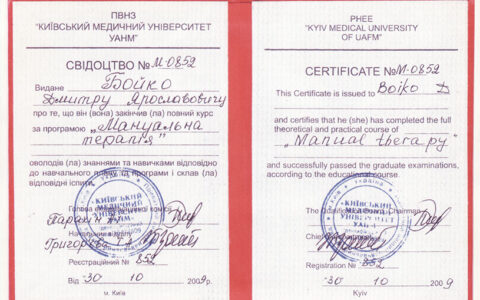 ПВНЗ
"КИЇВСЬКИЙ МЕДИЧНИЙ УНІВЕРСИТЕТ
УАНМ"
СВІДОЦТВО № М-0852
Видане Бойко
Дмитру Ярославовичу
про те, що він (вона) закінчив (ла) повний курс
за програмою „Мануальна
терапія"
оволодів (ла) знаннями та навичками відповідно
до навчального плану та програми і склав (ла)
відповідні іспити.
Голова
Григор
Реєстраційний № 852
Від 30 10 2009р.
м. Київ
PHEE
"KYIV MEDICAL UNIVERSITY
OF UAFM"
CERTIFICATE № М-0852
This Certificate is issued to Boiko D
and certifies that he (she) has completed the full
theoretical and practical course of
„Manual therapy"
and successfully passed the graduate examinations,
according to the educational course.
Україна
КИЇВСЬКИЙ
МЕДИЧНИЙ
УНІВЕРСИТЕТ
УАНМ
Chairman
Chief
Registration № 852
30 10 2009
Kyiv